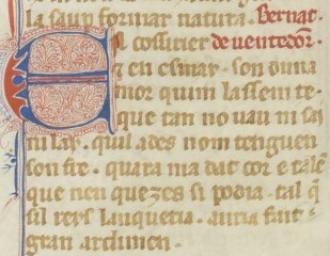 la saup formar natura. Bernat.
EN cossirier de ventedorn.
z en esmai. son duna
mor quim lassem te.
que tan no uau ni sai
ni lai. quil ades nom tenguen
son fre. quara ma dat cor e talē
que nen quezes si podia. tal q̄
sil reys lanqueria. auria fait
gran ardimen.